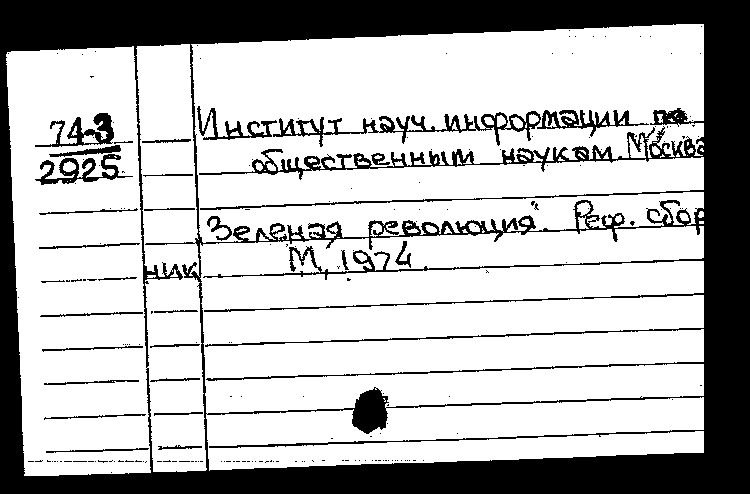 74-3
2925
Институт науч. информации по
общественным наукам. Москва
"Зеленая революция". Реф. сбор
ник. М., 1974.